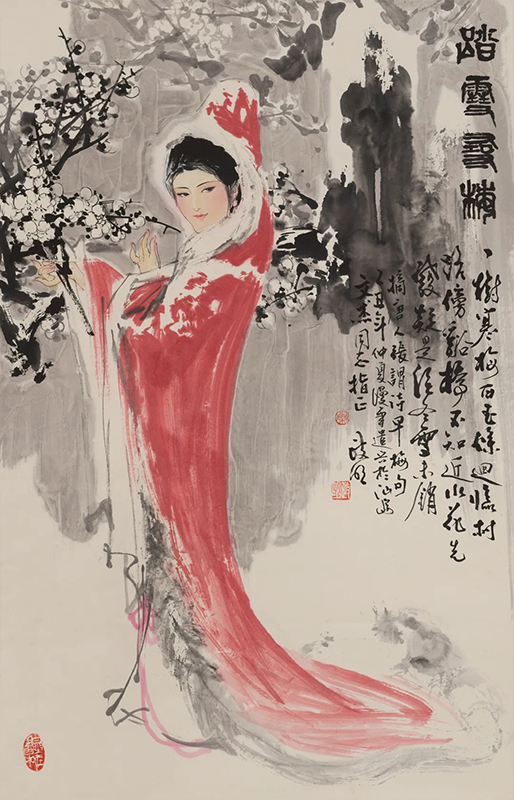 踏雪尋梅
一樹寒梅白玉條迴臨村
路傍谿橋不知近水花先
發疑是經冬雪未銷
摘唐人張謂詩早梅句
丑年仲夏漫寫遣興於汕
文杰同志指正